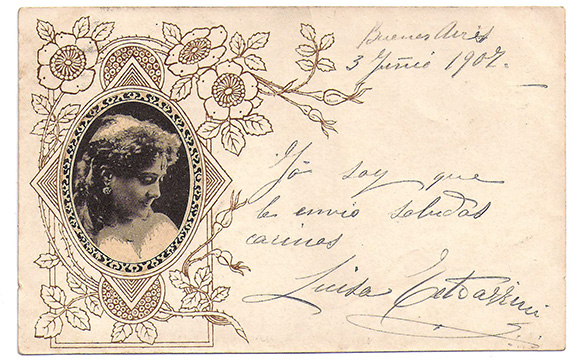 Buenos Aires
3 Junio 1902.
Yo soy que
le envio saludos
carinos
Luisa Tetrazzini